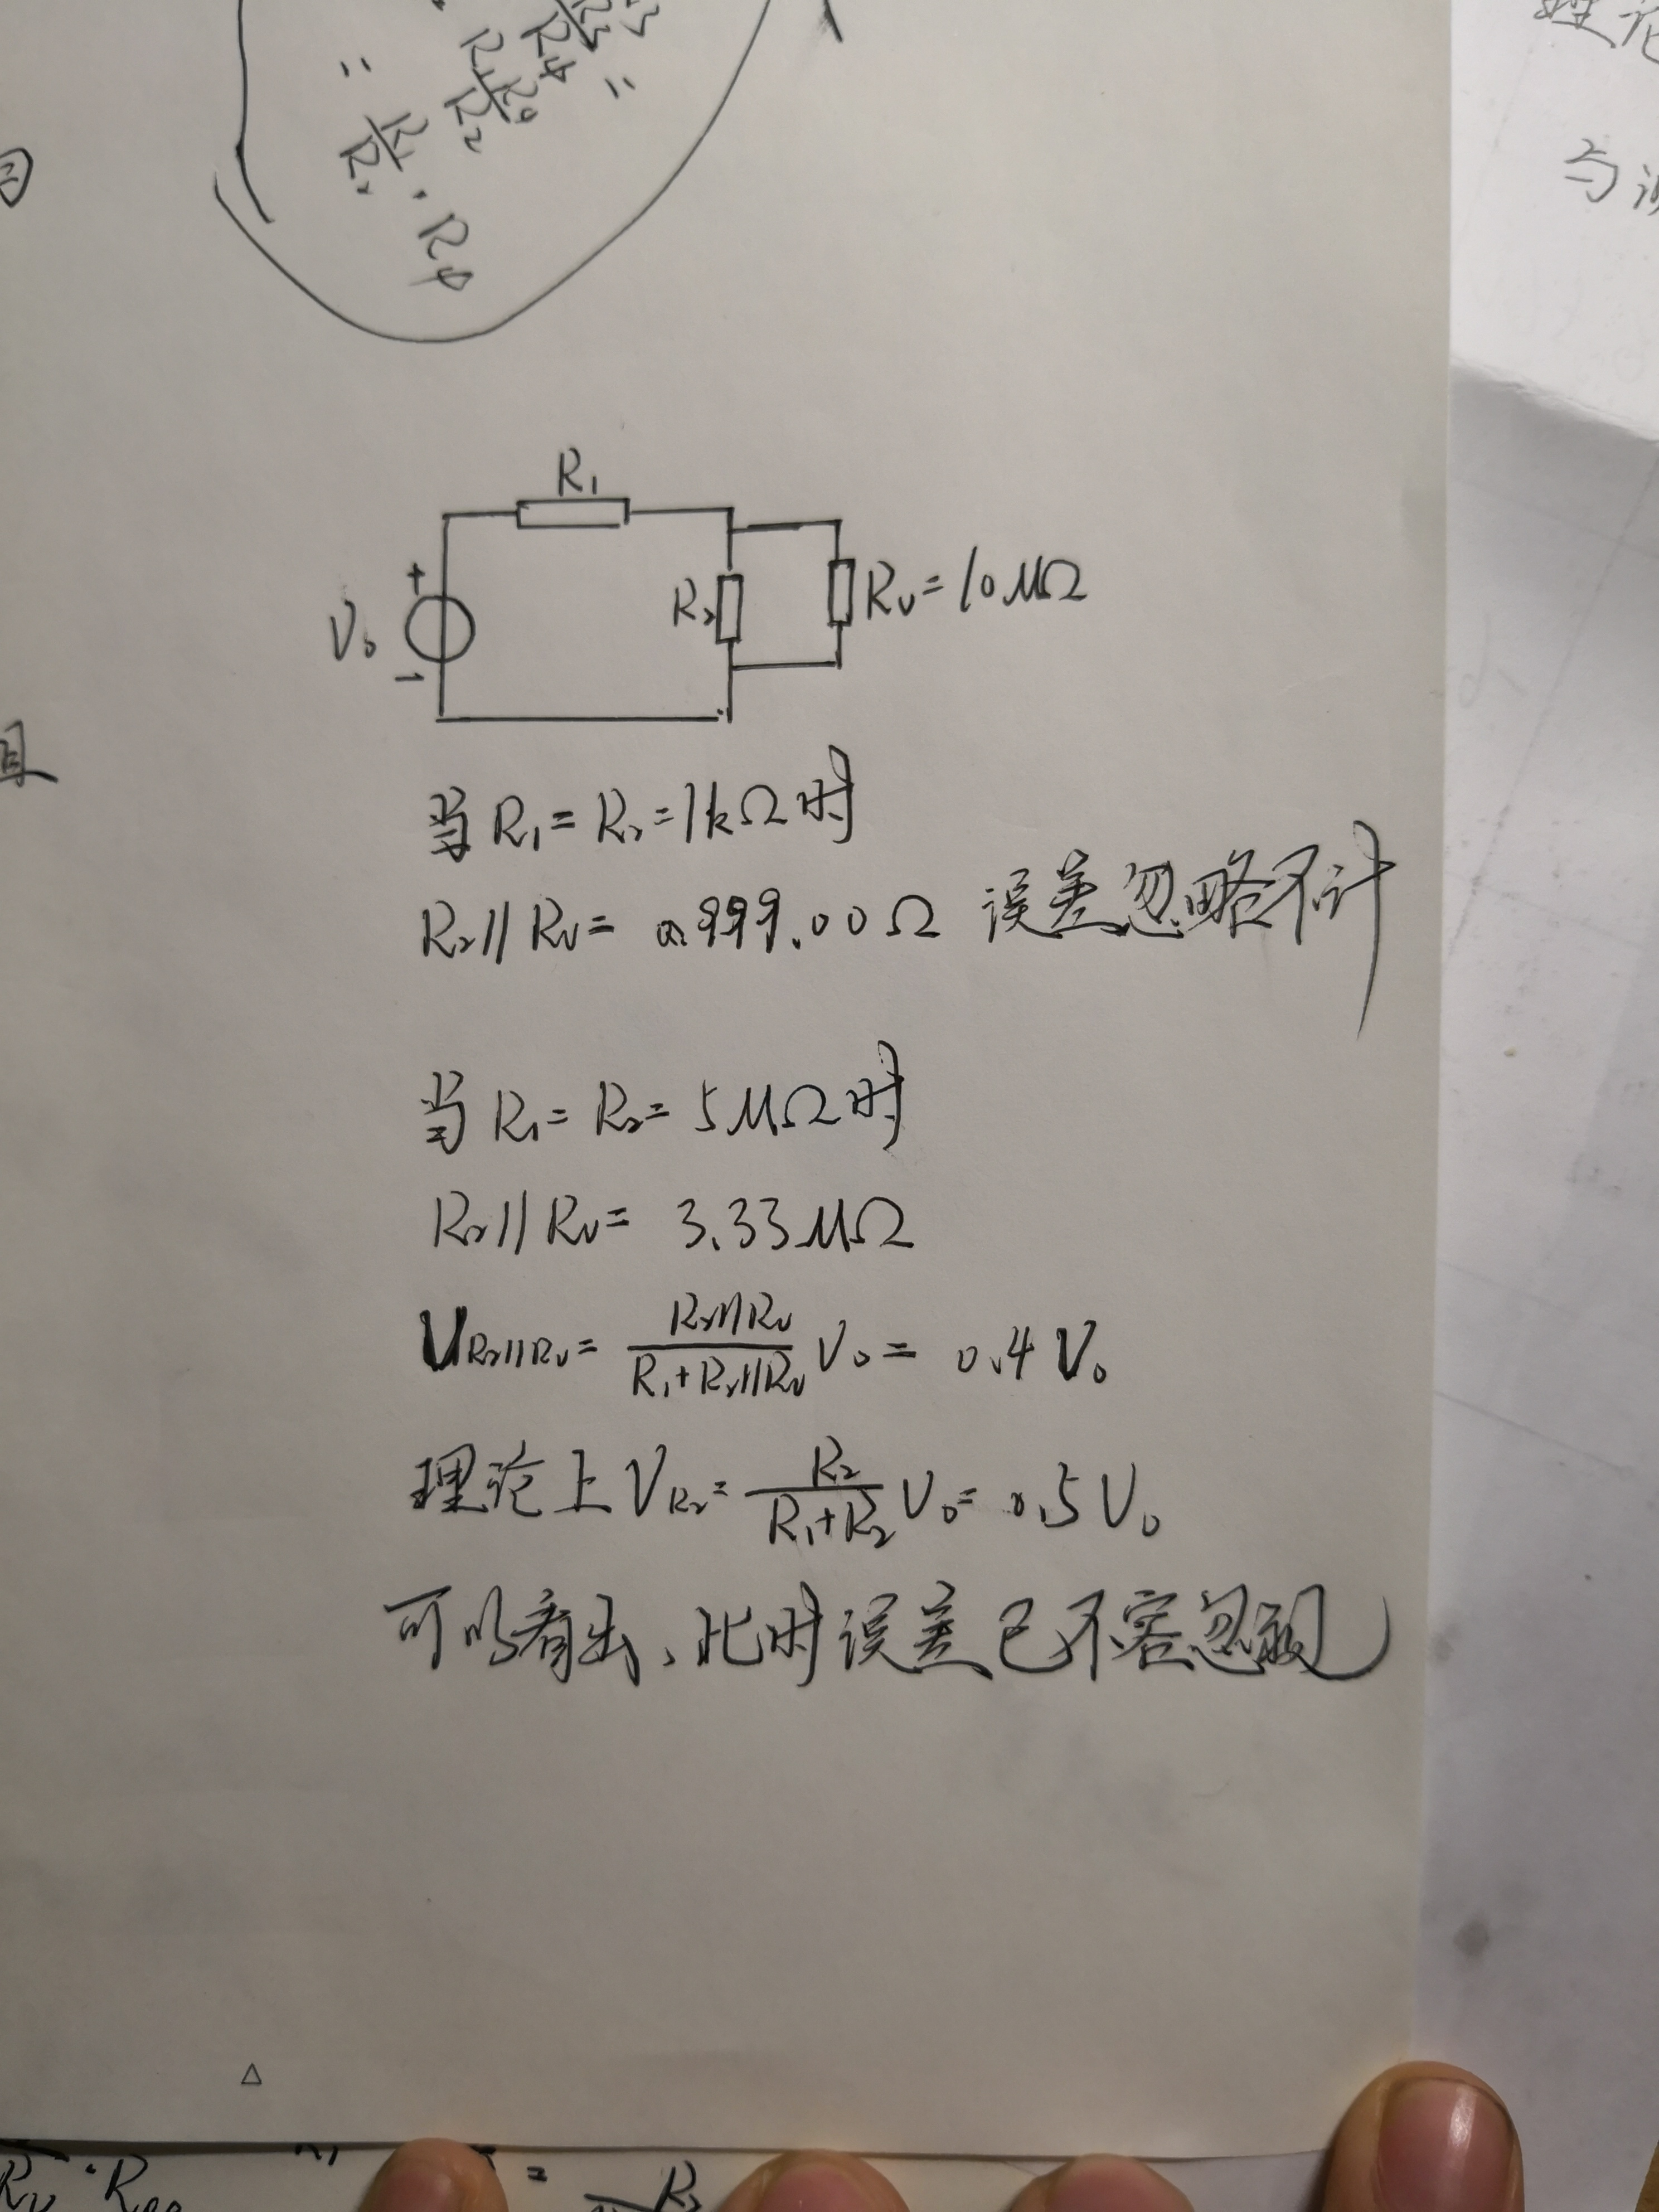 = R1/R2 · R4
R1
+
V0
-
R2
Rv=10MΩ
当R1=R2=1kΩ时
R2//Rv= 999.00Ω 误差忽略不计
当R1=R2=5MΩ时
R2//Rv= 3.33MΩ
UR2//Rv= R2//Rv/R1+R2//Rv V0= 0.4V0
理论上VR2= R2/R1+R2 V0= 0.5V0
可以看出,此时误差已不容忽视
△